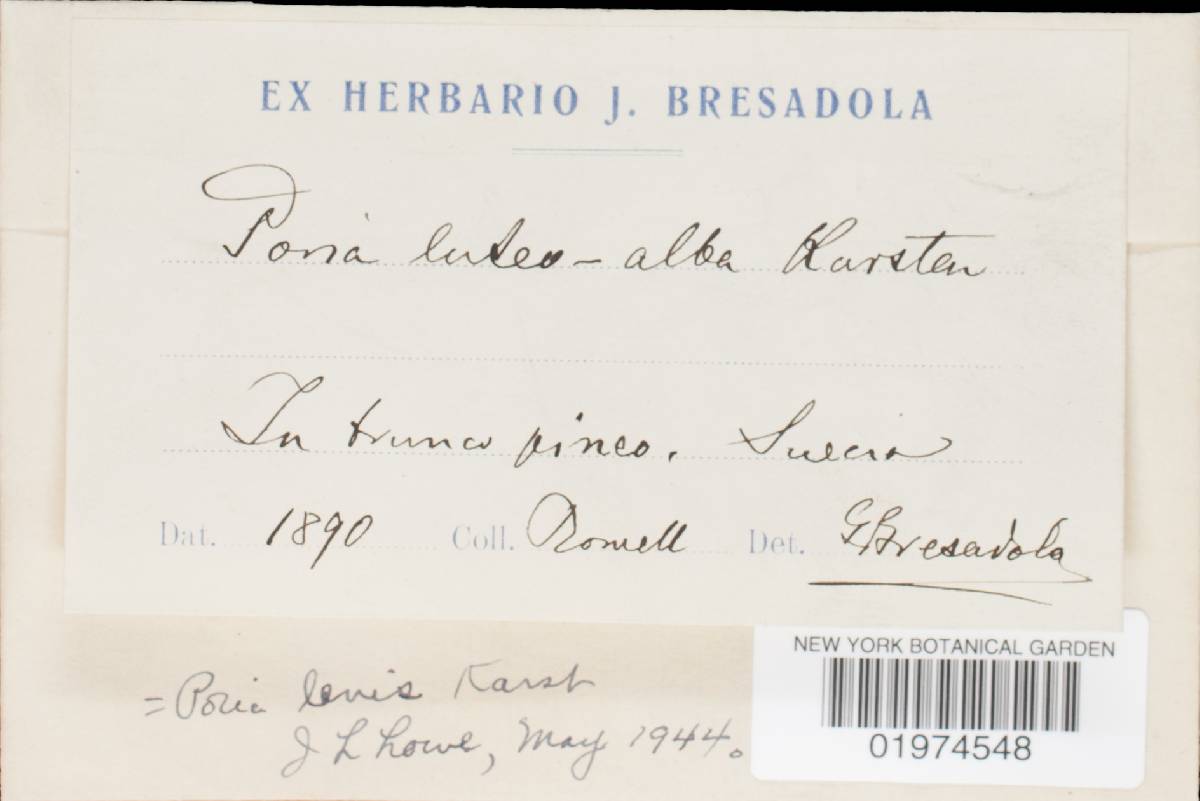 EX HERBARIO J. BRESADOLA
Poria luteo-alba Karsten
In trunco pineo. Suecia
Dat. 1890 Coll. Romell Det. G Bresadola
= Poria lenis Karst
J L Lowe, May 1944.
NEW YORK BOTANICAL GARDEN
01974548